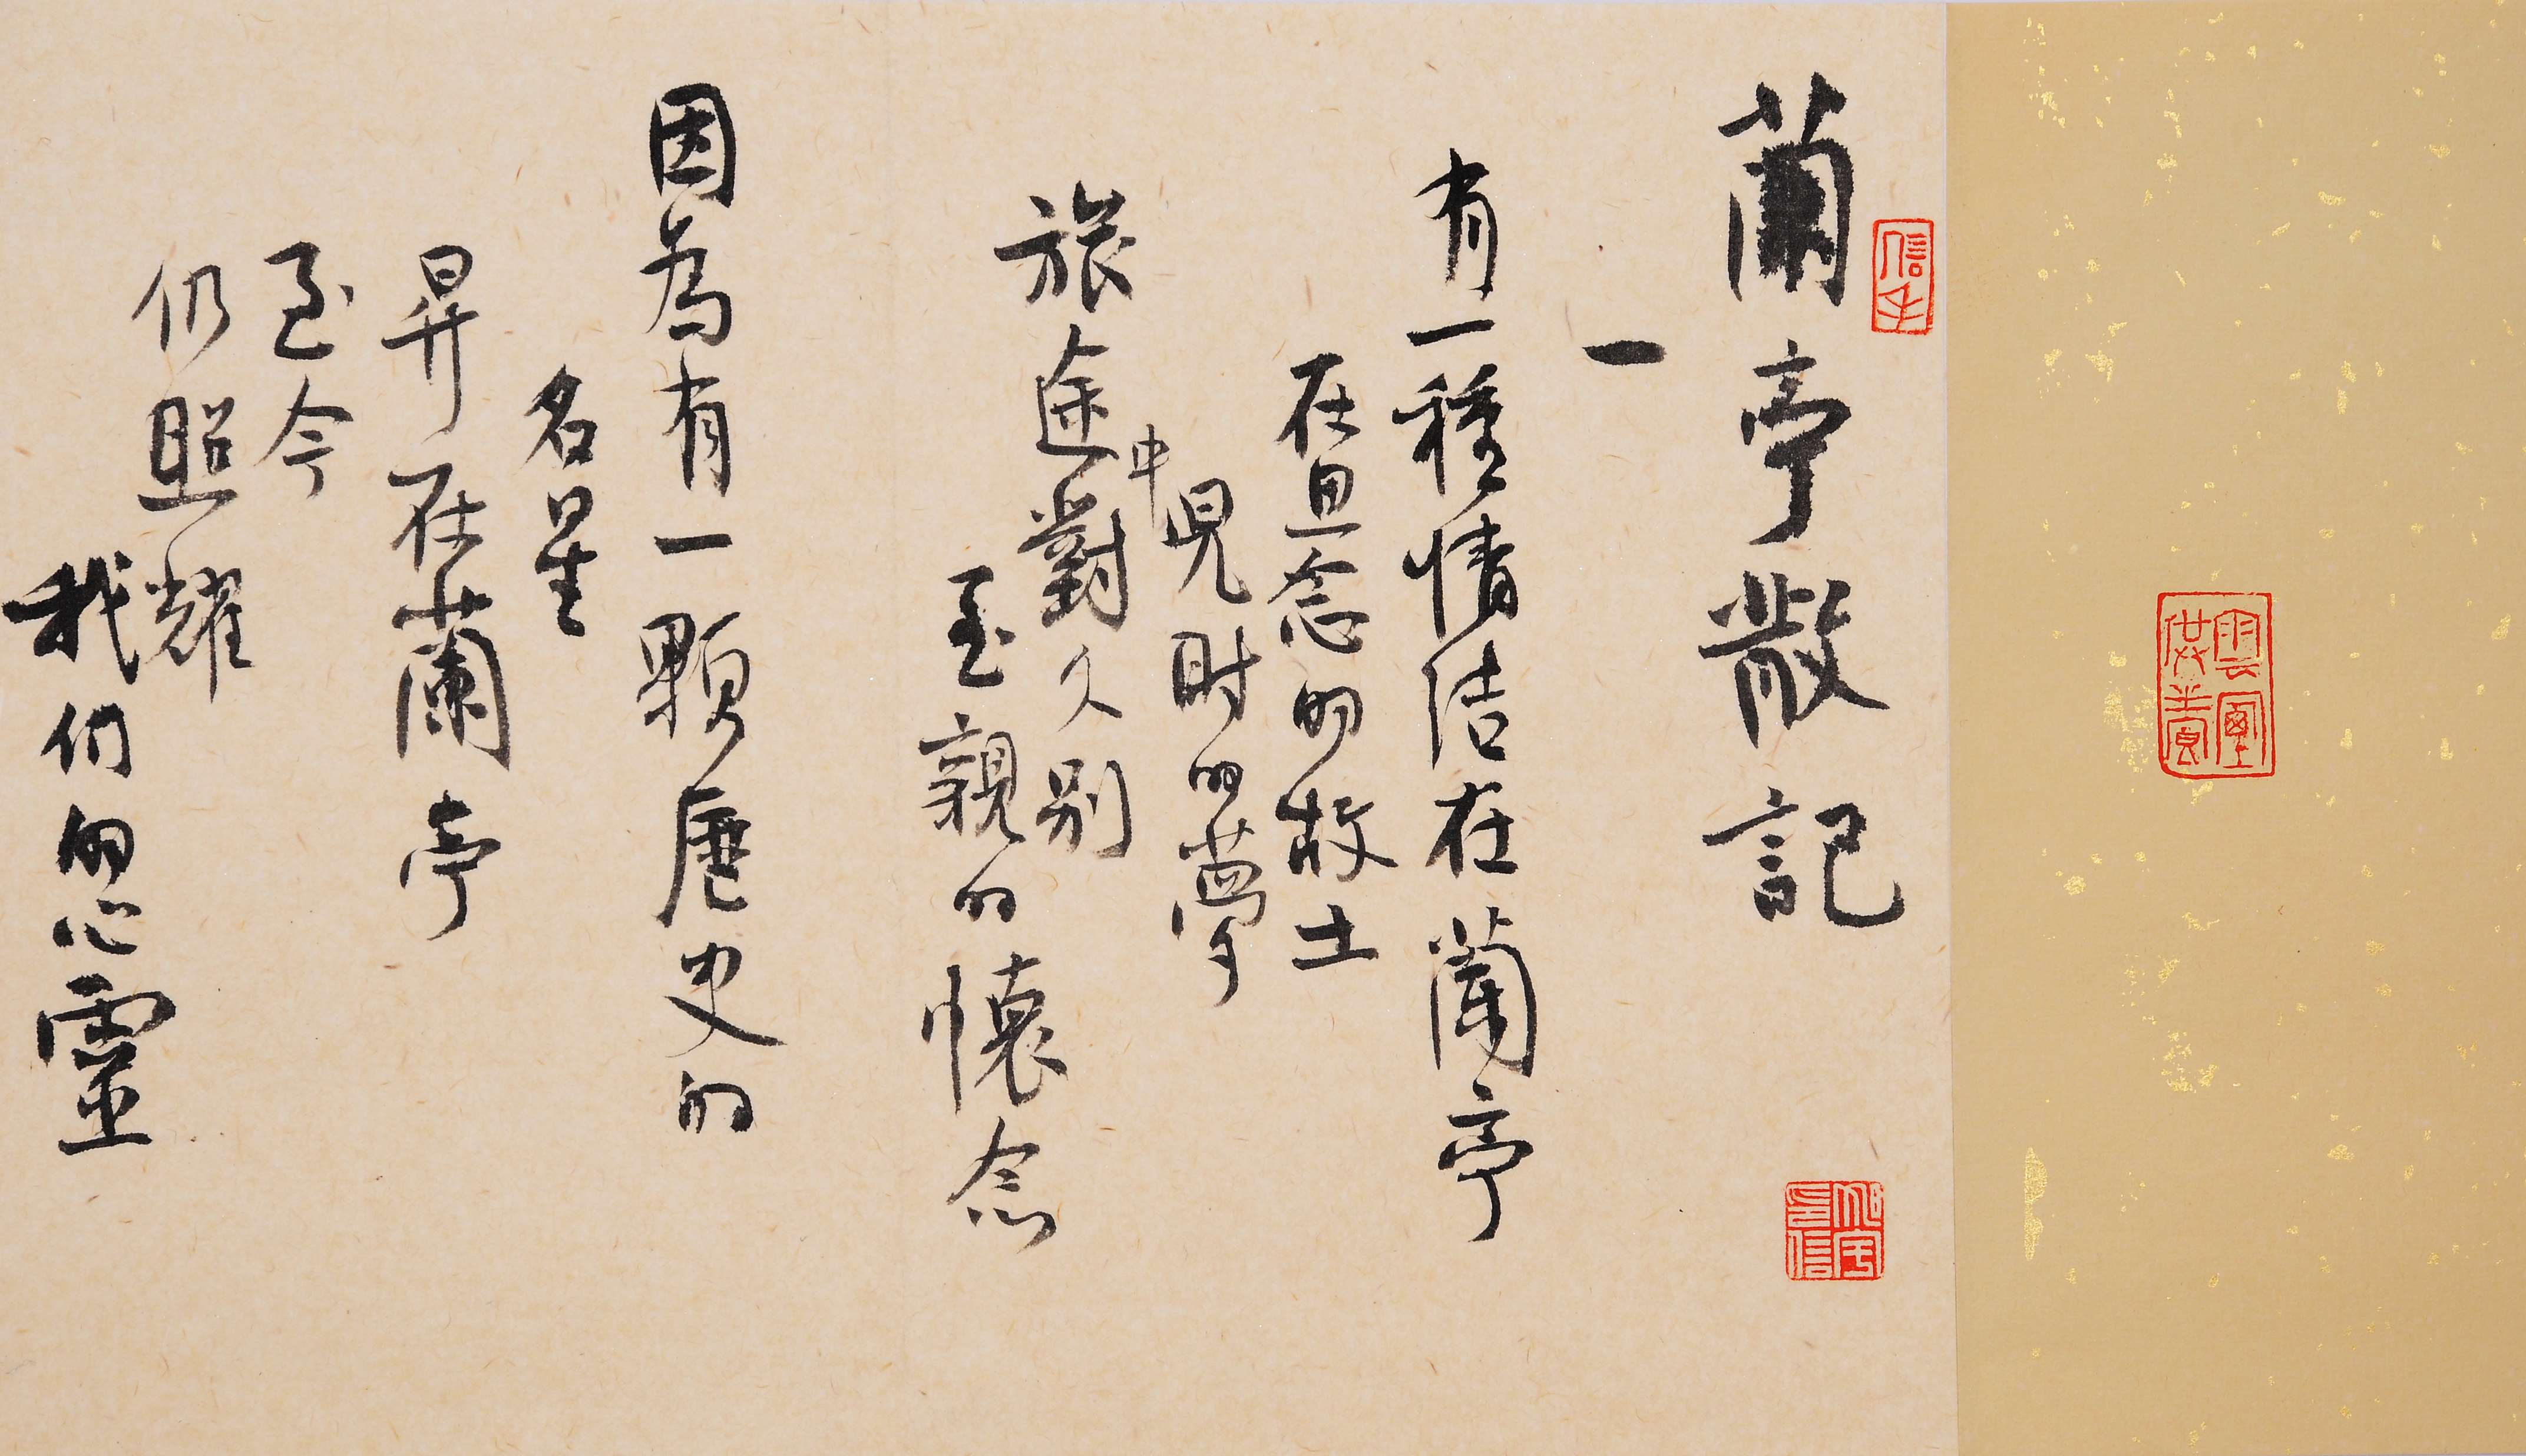 雲壑供養
信手
蘭亭散記
一
有一種情結在蘭亭
在思念的故土
兒時的夢
旅途中對久別
至親的懷念
因為有一顆歷史的
名星
昇在蘭亭
至今
仍照耀
我們的心靈